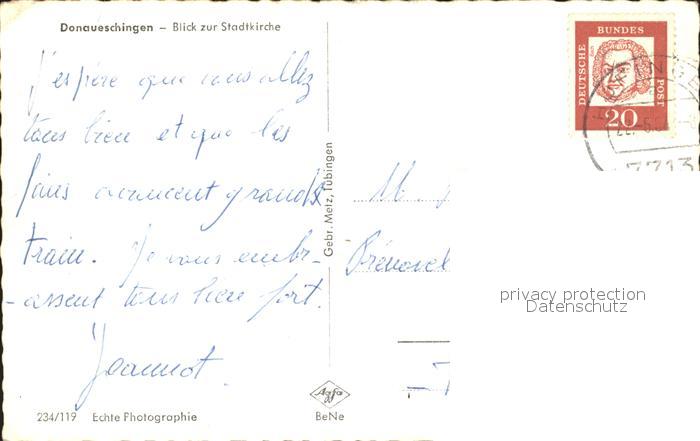 Donaueschingen – Blick zur Stadtkirche
J'espère que vous allez
tous bien et que les
foins avancent grand
train. Je vous embr-
-assent tous bien fort.
Jeannot.
Gebr. Metz, Tübingen
234/119 Echte Photographie
Agfa
BeNe
DEUTSCHE
BUNDES
POST
20
7713
M.
Brénovel
privacy protection
Datenschutz